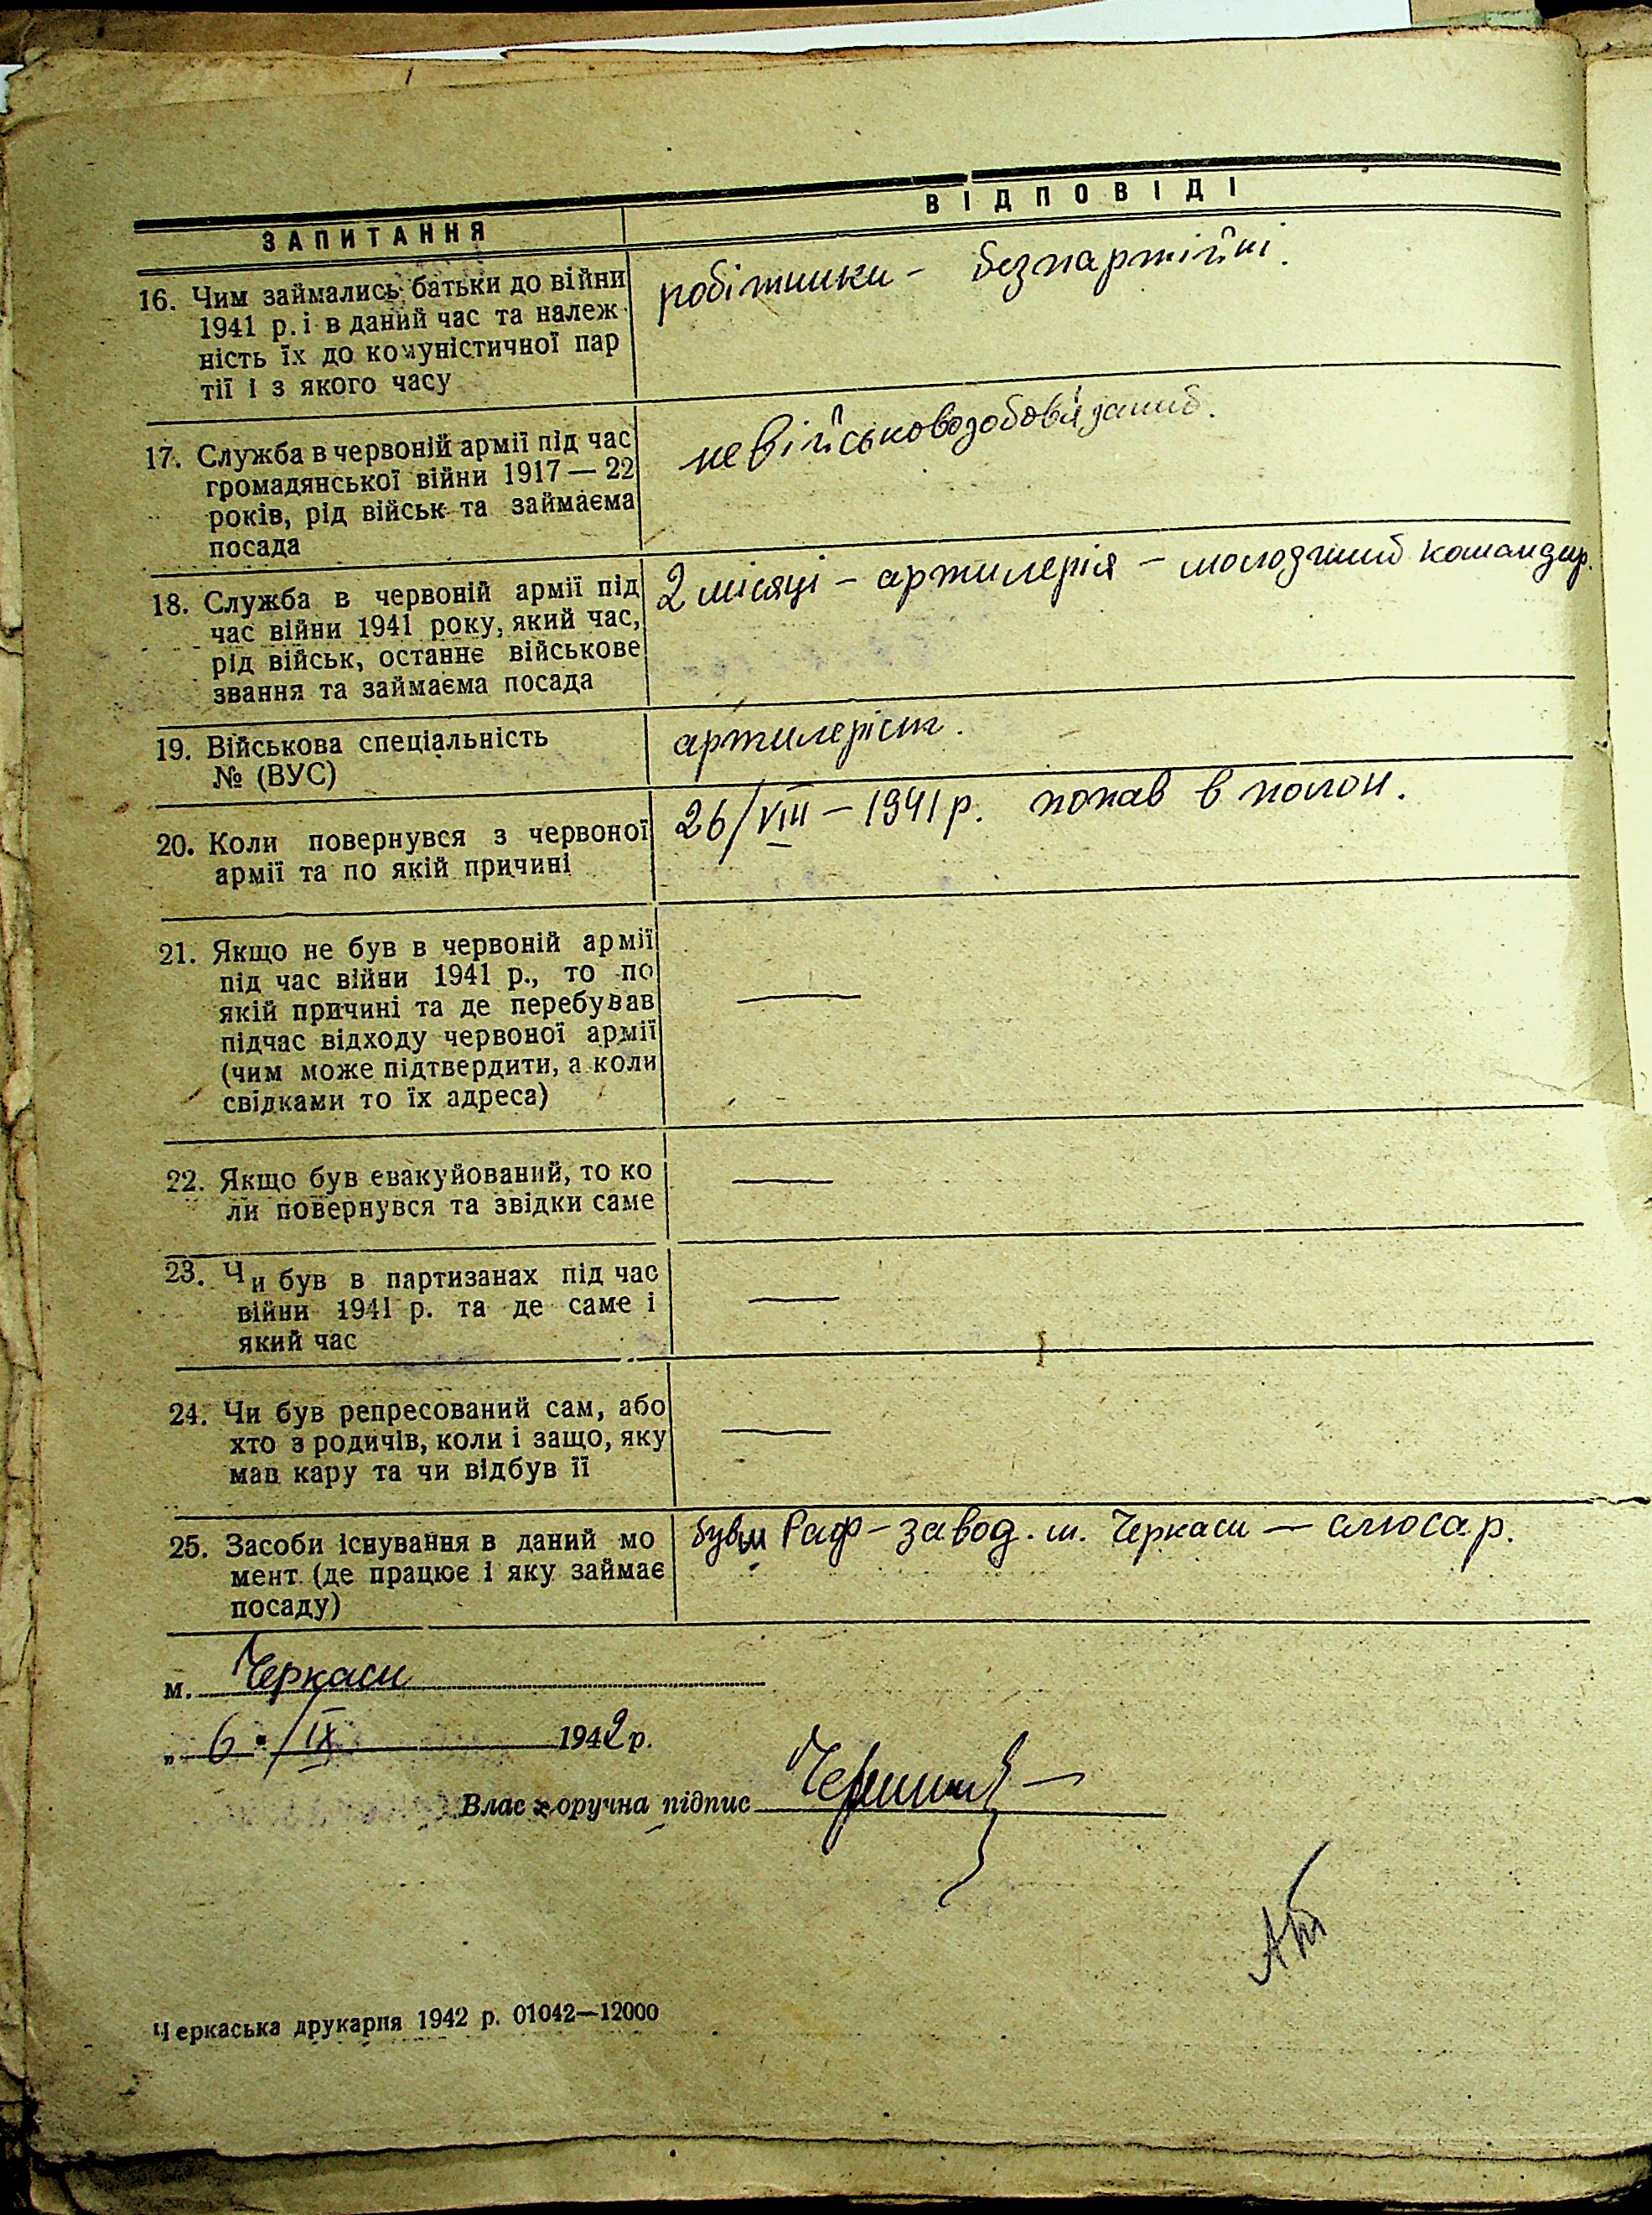 ЗАПИТАННЯ
ВІДПОВІДІ
16. Чим займались батьки до війни
1941 р. і в даний час та належ
ність їх до комуністичної пар
тії і з якого часу
робітники - безпартійні.
17. Служба в червоній армії під час
громадянської війни 1917 — 22
років, рід військ та займаєма
посада
невійськовозобов'язаний.
18. Служба в червоній армії під
час війни 1941 року, який час,
рід військ, останнє військове
звання та займаєма посада
2 місяці - артилерія - молодший командир.
19. Військова спеціальність
№ (ВУС)
артилеріст.
20. Коли повернувся з червоної
армії та по якій причині
26/VIII - 1941 р. попав в полон.
21. Якщо не був в червоній армії
під час війни 1941 р., то по
якій причині та де перебував
підчас відходу червоної армії
(чим може підтвердити, а коли
свідками то їх адреса)
—
22. Якщо був евакуйований, то ко
ли повернувся та звідки саме
—
23. Чи був в партизанах під час
війни 1941 р. та де саме і
який час
—
24. Чи був репресований сам, або
хто з родичів, коли і защо, яку
мав кару та чи відбув її
—
25. Засоби існування в даний мо
мент (де працює і яку займає
посаду)
Раф - завод. м. Черкаси — слюсар.
м. Черкаси
„ 6 " / IX 1942 р.
Влас оручна підпис
Черкаська друкарня 1942 р. 01042—12000